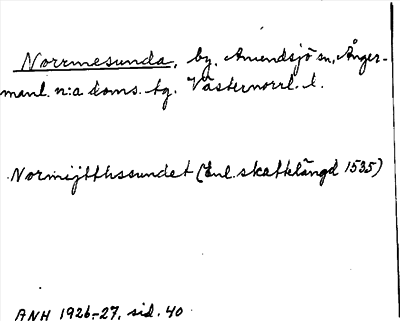 Norrmesunda, by, Anundsjö sn, Ånger-
manl. n:a doms. tg. Västernorrl. l.
Normijtthssundet (Enl. skattlängd 1535)
ANH 1926-27, sid. 40